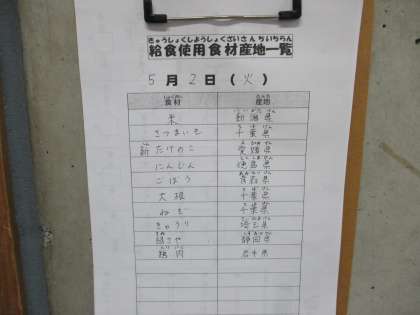 きゅうしょくしようしょくざいさんちいちらん
給食使用食材産地一覧
5月2日(火)
食材 産地
米 新潟県
さつまいも 千葉県
新たけのこ 愛媛県
にんじん 徳島県
ごぼう 青森県
大根 千葉県
ねぎ 千葉県
きゅうり 埼玉県
絹さや 静岡県
鶏肉 岩手県